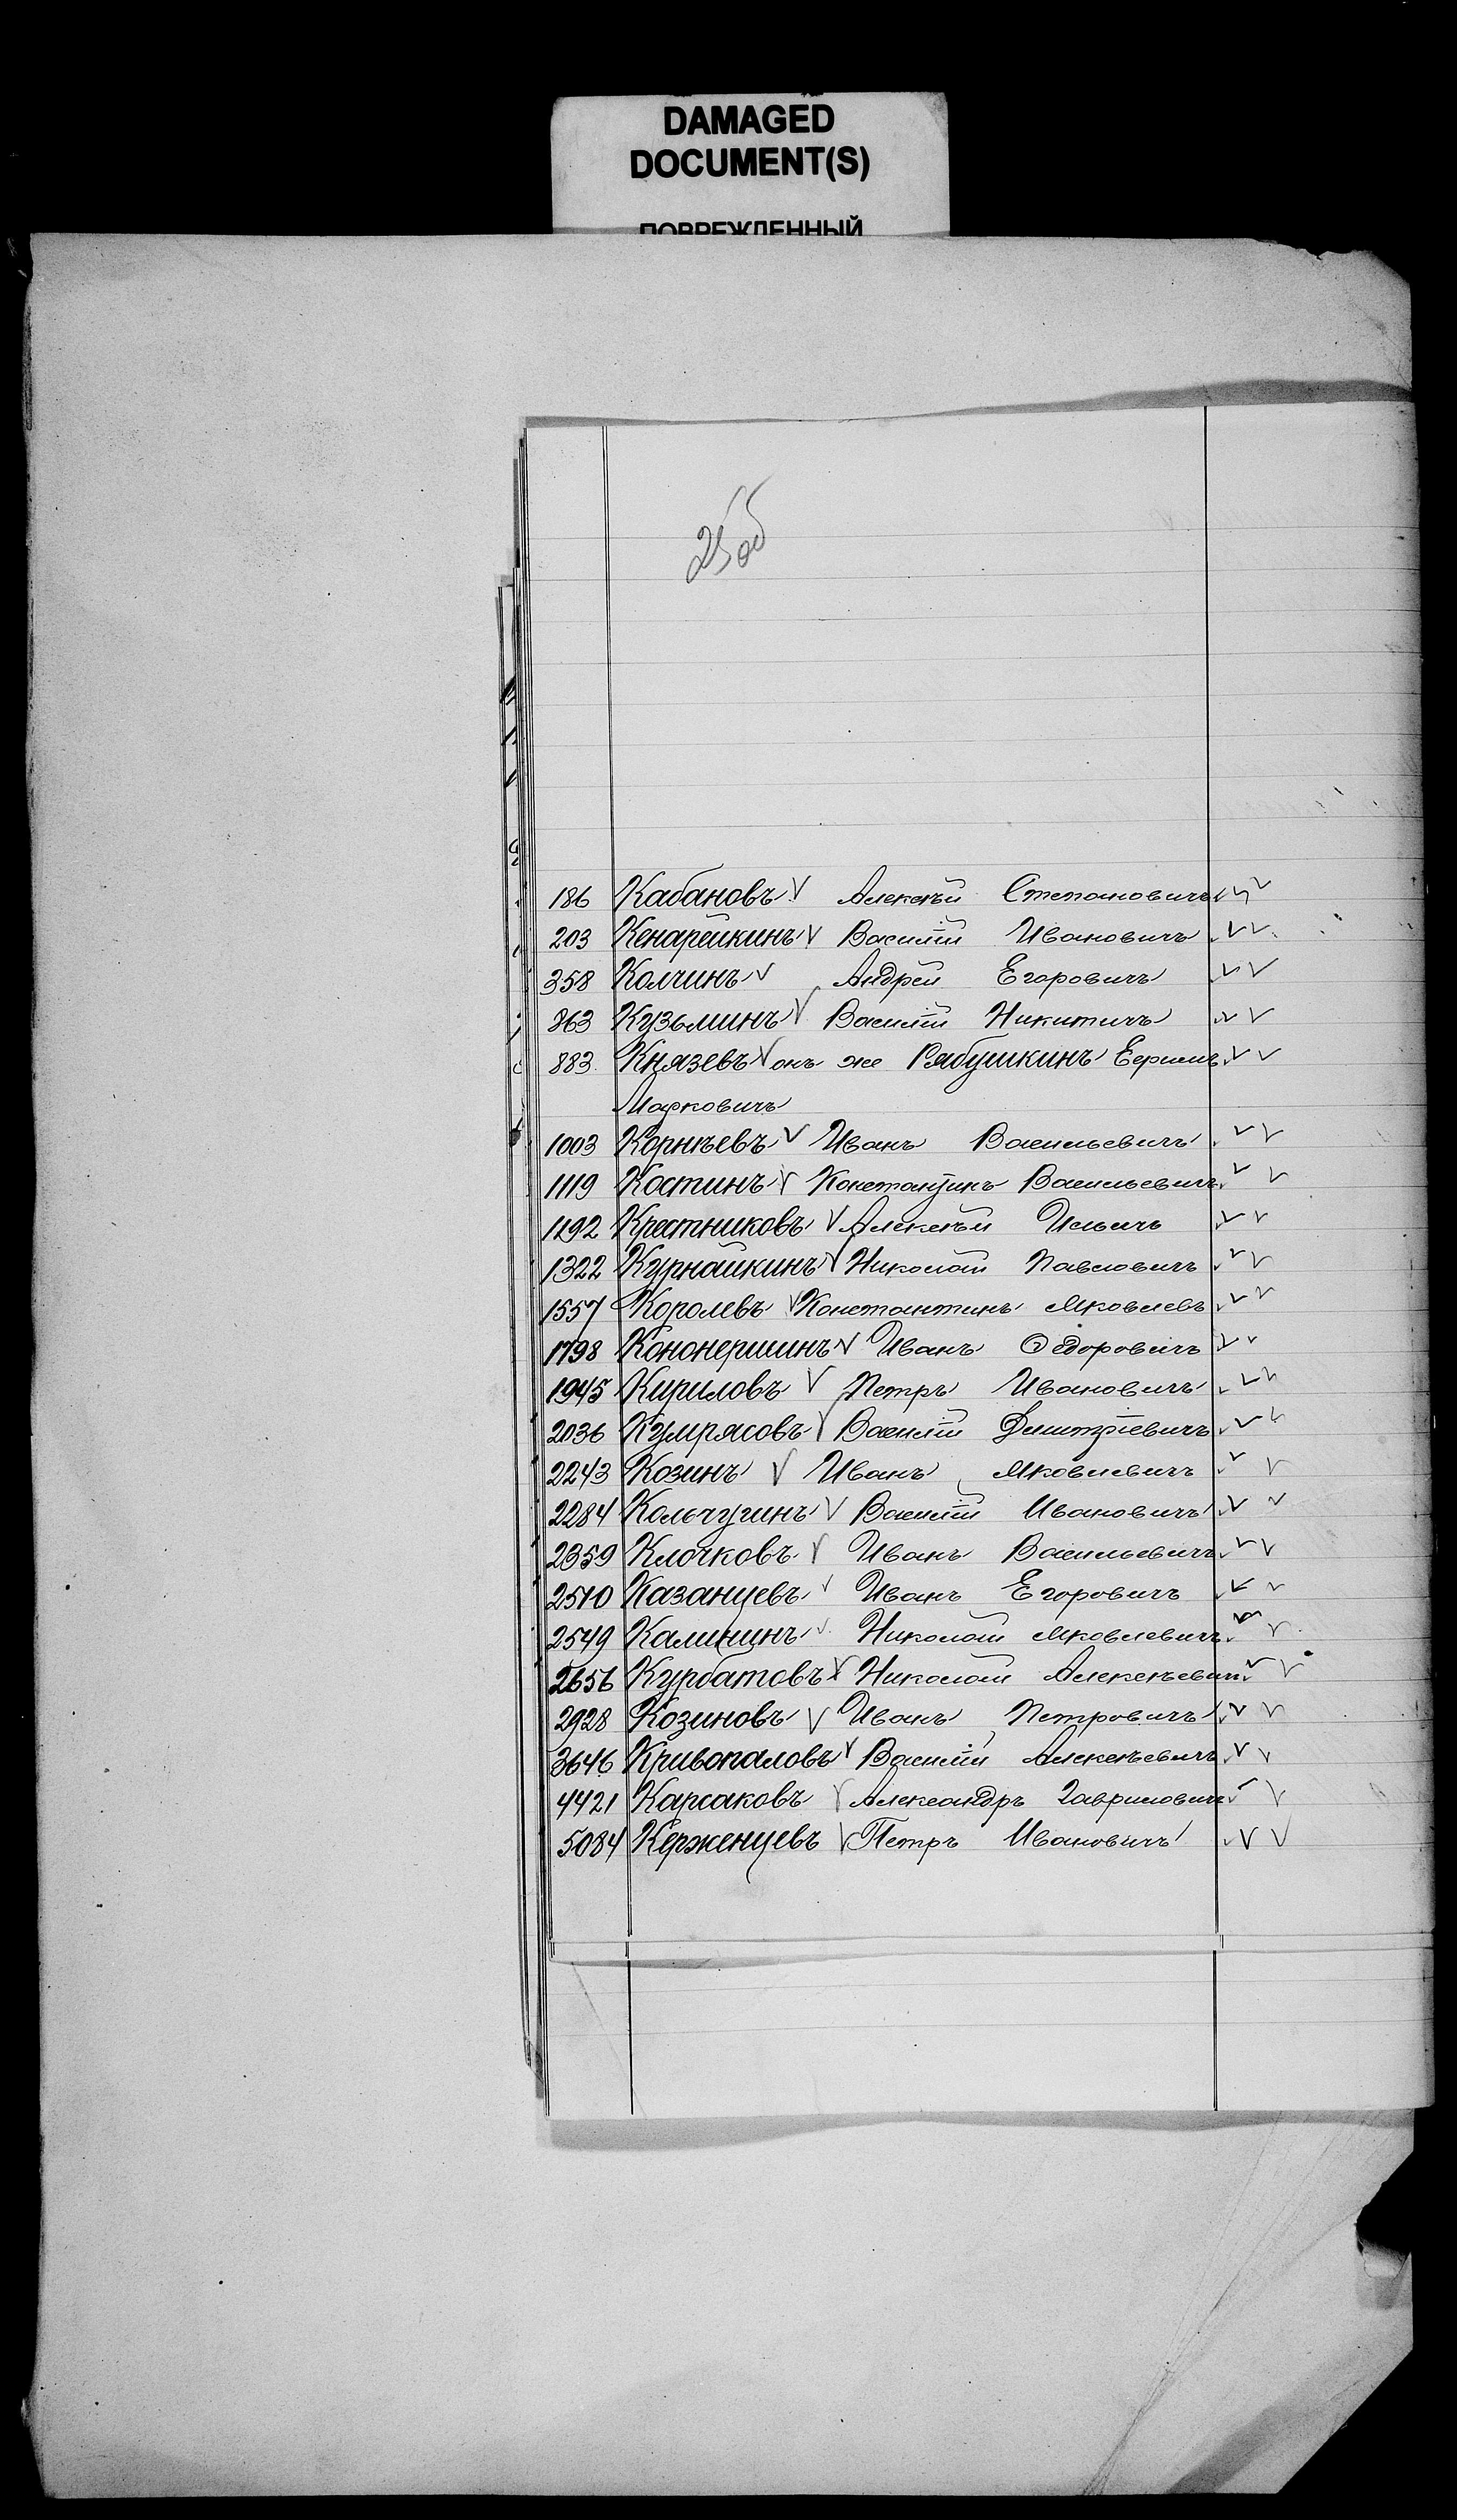 DAMAGED
DOCUMENT(S)
ПОВРЕЖДЕННЫЙ
25об
186 Кабановъ Алексѣй Степановичъ
203 Кенарейкинъ Василій Ивановичъ
358 Колчинъ Андрей Егоровичъ
863 Кузьминъ Василій Никитичъ
883 Князевъ онъ же Рябушкинъ Ефимъ
Марковичъ
1003 Корнѣевъ Иванъ Васильевичъ
1119 Костинъ Константинъ Васильевичъ
1192 Крестниковъ Алексѣй Ильичъ
1322 Курнайкинъ Николай Павловичъ
1557 Королевъ Константинъ Яковлевъ
1798 Кононершинъ Иванъ Ѳедоровичъ
1945 Кириловъ Петръ Ивановичъ
2036 Кумрясовъ Василій Дмитріевичъ
2243 Козинъ Иванъ Яковлевичъ
2284 Кольчугинъ Василій Ивановичъ
2359 Клочковъ Иванъ Васильевичъ
2510 Казанцевъ Иванъ Егоровичъ
2549 Калининъ Николай Яковлевичъ
2656 Курбатовъ Николай Алексѣевичъ
2928 Козиновъ Иванъ Петровичъ
3646 Кривопаловъ Василій Алексѣевичъ
4421 Карсаковъ Александръ Гавриловичъ
5084 Керженцевъ Петръ Ивановичъ